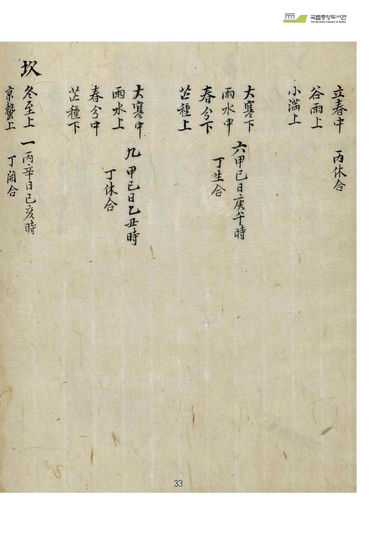 국립중앙도서관
立春中 丙休合
谷雨上
小滿上
大寒下 六甲己日庚午時
雨水中 丁生合
春分下
芒種上
大寒中 九甲己日乙丑時
雨水上 丁休合
春分中
芒種下
坎
冬至上 一丙辛日己亥時
京蟄上 丁開合
33